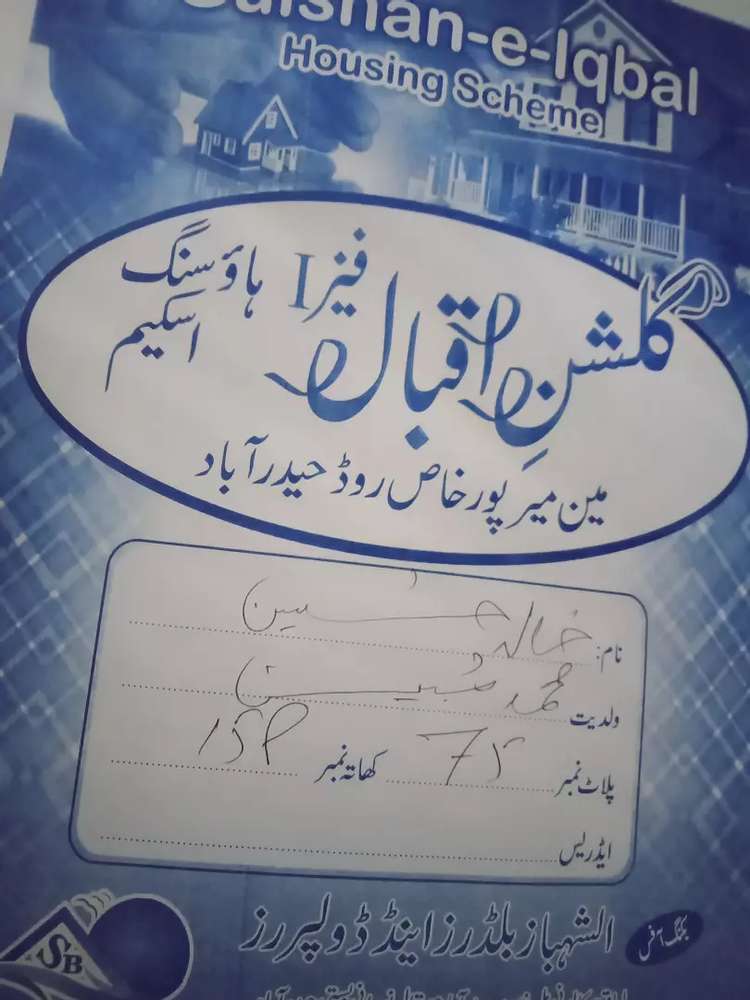 Gulshan-e-Iqbal
Housing Scheme
گلشنِ اقبال فیز I ہاؤسنگ اسکیم
مین میرپورخاص روڈ حیدرآباد
نام: خالد حسین
ولدیت محمد حسین
پلاٹ نمبر 75 کھاتہ نمبر
ایڈریس
بکنگ آفس الشہباز بلڈرز اینڈ ڈولپررز
SB